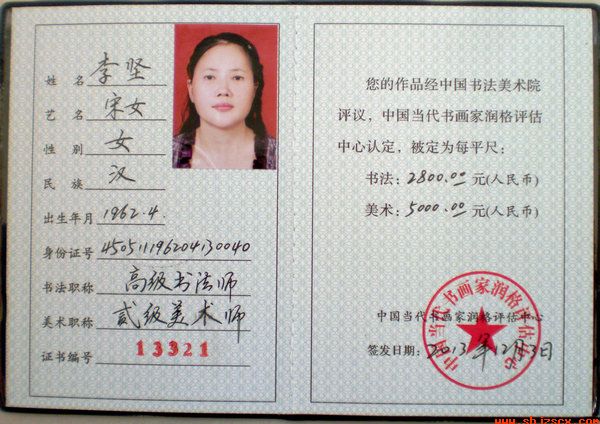 姓 名 李坚
艺 名 宋女
性 别 女
民 族 汉
出生年月 1962.4.
身份证号 450511196204130040
书法职称 高级书法师
美术职称 贰级美术师
证书编号 13321
您的作品经中国书法美术院
评议，中国当代书画家润格评估
中心认定，被定为每平尺：
书法：2800.00 元(人民币)
美术：5000.00 元(人民币)
中国当代书画家润格评估中心
中国当代书画家润格评估中心
签发日期：2013年12月3日
www.shjzscx.com